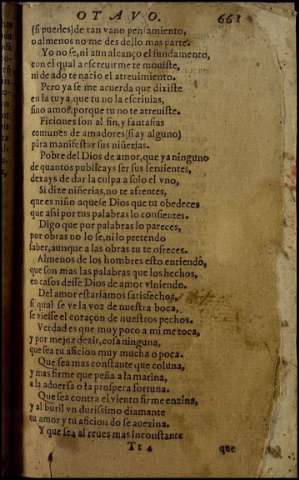 OTAVO. 661
(si puedes) de tan vano pensamiento,
o almenos no me des dello mas parte.
Yo no se, ni aun alcanço el fundamento,
con el qual a escreuirme te mouiste,
ni de ado te nacio el atreuimiento.
Pero ya se me acuerda que dixiste
en la tuya, que tu no la escriuias,
sino amor, porque tu no te atreuiste.
Ficiones son al fin, y fantasias
comunes de amadores (si ay alguno)
para manifestar sus niñerias.
Pobre del Dios de amor, que ya ninguno
de quantos publicays ser sus siruientes,
dexays de dar la culpa a solo el vno,
Si dize niñerias, no te afrentes,
que es niño aquese Dios que tu obedeces
que assi por tus palabras lo consientes.
Digo que por palabras lo pareces,
por obras no lo se, ni lo pretendo
saber, aunque a las obras tu te ofreces.
Almenos de los hombres esto entiendo,
que son mas las palabras que los hechos,
en casos desse Dios de amor viniendo.
Del amor estariamos satisfechos,
si qual se ve la voz de nuestra boca,
se viesse el coraçon de nuestros pechos.
Verdad es que muy poco a mi me toca,
y por mejor dezir, cosa ninguna,
que sea tu aficion muy mucha o poca.
Que sea mas constante que coluna,
y mas firme que peña a la marina,
a la aduersa o la prospera fortuna.
Que sea contra el viento firme enzina,
y al buril vn durissimo diamante
tu amor y tu aficion do se auezina.
Y que sea al reues mas inconstante
Tt 4 que